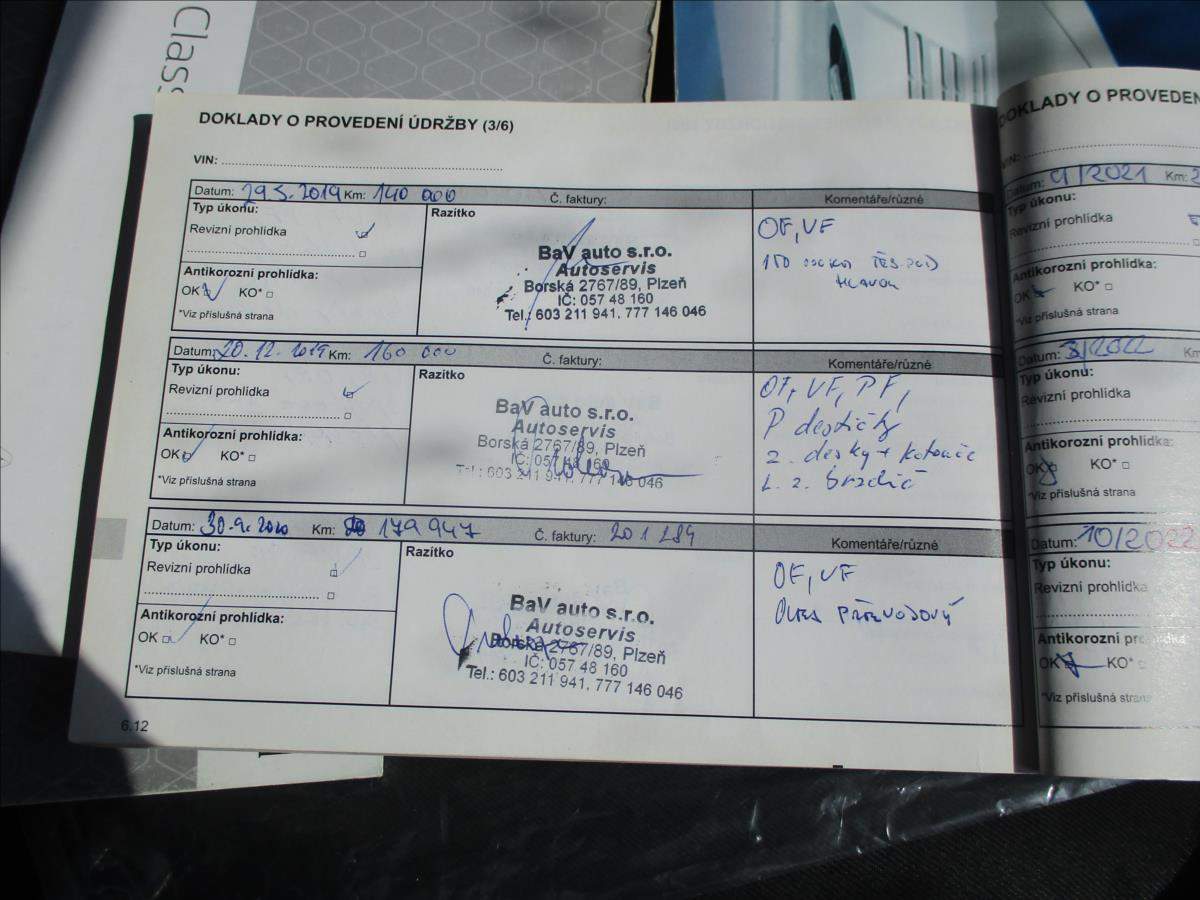 Clas
DOKLADY O PROVEDENÍ ÚDRŽBY (3/6)
VIN:
Datum: 29.5.2019 Km: 140 000 Č. faktury: Komentáře/různé
Typ úkonu:
Razítko
Revizní prohlídka
Antikorozní prohlídka:
OK KO*
*Viz příslušná strana
BaV auto s.r.o.
Autoservis
Borská 2767/89, Plzeň
IČ: 057 48 160
Tel.: 603 211 941, 777 146 046
OF, VF
TĚS. POD
HLAVOU
Datum: 20.12.2019 Km: 160 000 Č. faktury: Komentáře/různé
Typ úkonu:
Razítko
Revizní prohlídka
Antikorozní prohlídka:
OK KO*
*Viz příslušná strana
BaV auto s.r.o.
Autoservis
Borská 2767/89, Plzeň
IČ: 057 48 160
Tel.: 603 211 941, 777 146 046
OF, VF, PF,
P destičky
z. desky + kotouče
L. z. brzdič
Datum: 30.9.2020 Km: 179 947 Č. faktury: 201 289 Komentáře/různé
Typ úkonu:
Razítko
Revizní prohlídka
Antikorozní prohlídka:
OK KO*
*Viz příslušná strana
BaV auto s.r.o.
Autoservis
Borská 2767/89, Plzeň
IČ: 057 48 160
Tel.: 603 211 941, 777 146 046
OF, VF
OLEJ PŘEVODOVÝ
6.12
DOKLADY O PROVEDEN
VIN:
Datum: 9/2021 Km: 2
Typ úkonu:
Revizní prohlídka
Antikorozní prohlídka:
OK KO*
*Viz příslušná strana
Datum: 3/2022 Km
Typ úkonu:
Revizní prohlídka
Antikorozní prohlídka:
OK KO*
*Viz příslušná strana
Datum: 10/2022
Typ úkonu:
Revizní prohlídka
Antikorozní prohlídka
OK KO*
*Viz příslušná strana